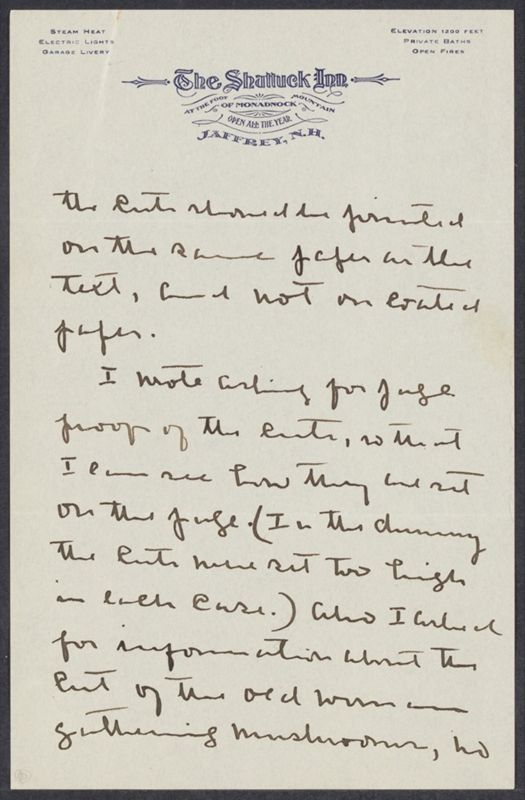 STEAM HEAT
ELECTRIC LIGHTS
GARAGE LIVERY
ELEVATION 1200 FEET
PRIVATE BATHS
OPEN FIRES
The Shattuck Inn
AT THE FOOT OF MONADNOCK MOUNTAIN
OPEN ALL THE YEAR
JAFFREY, N.H.
the cuts should be printed
on the same paper as the
text, and not on coated
paper.
I wrote asking for page
proof of the cuts, so that
I can see how they are set
on the page. (In the dummy
the cuts were set too high
in each case.) Also I asked
for information about the
cut of the old woman
gathering mushrooms, no